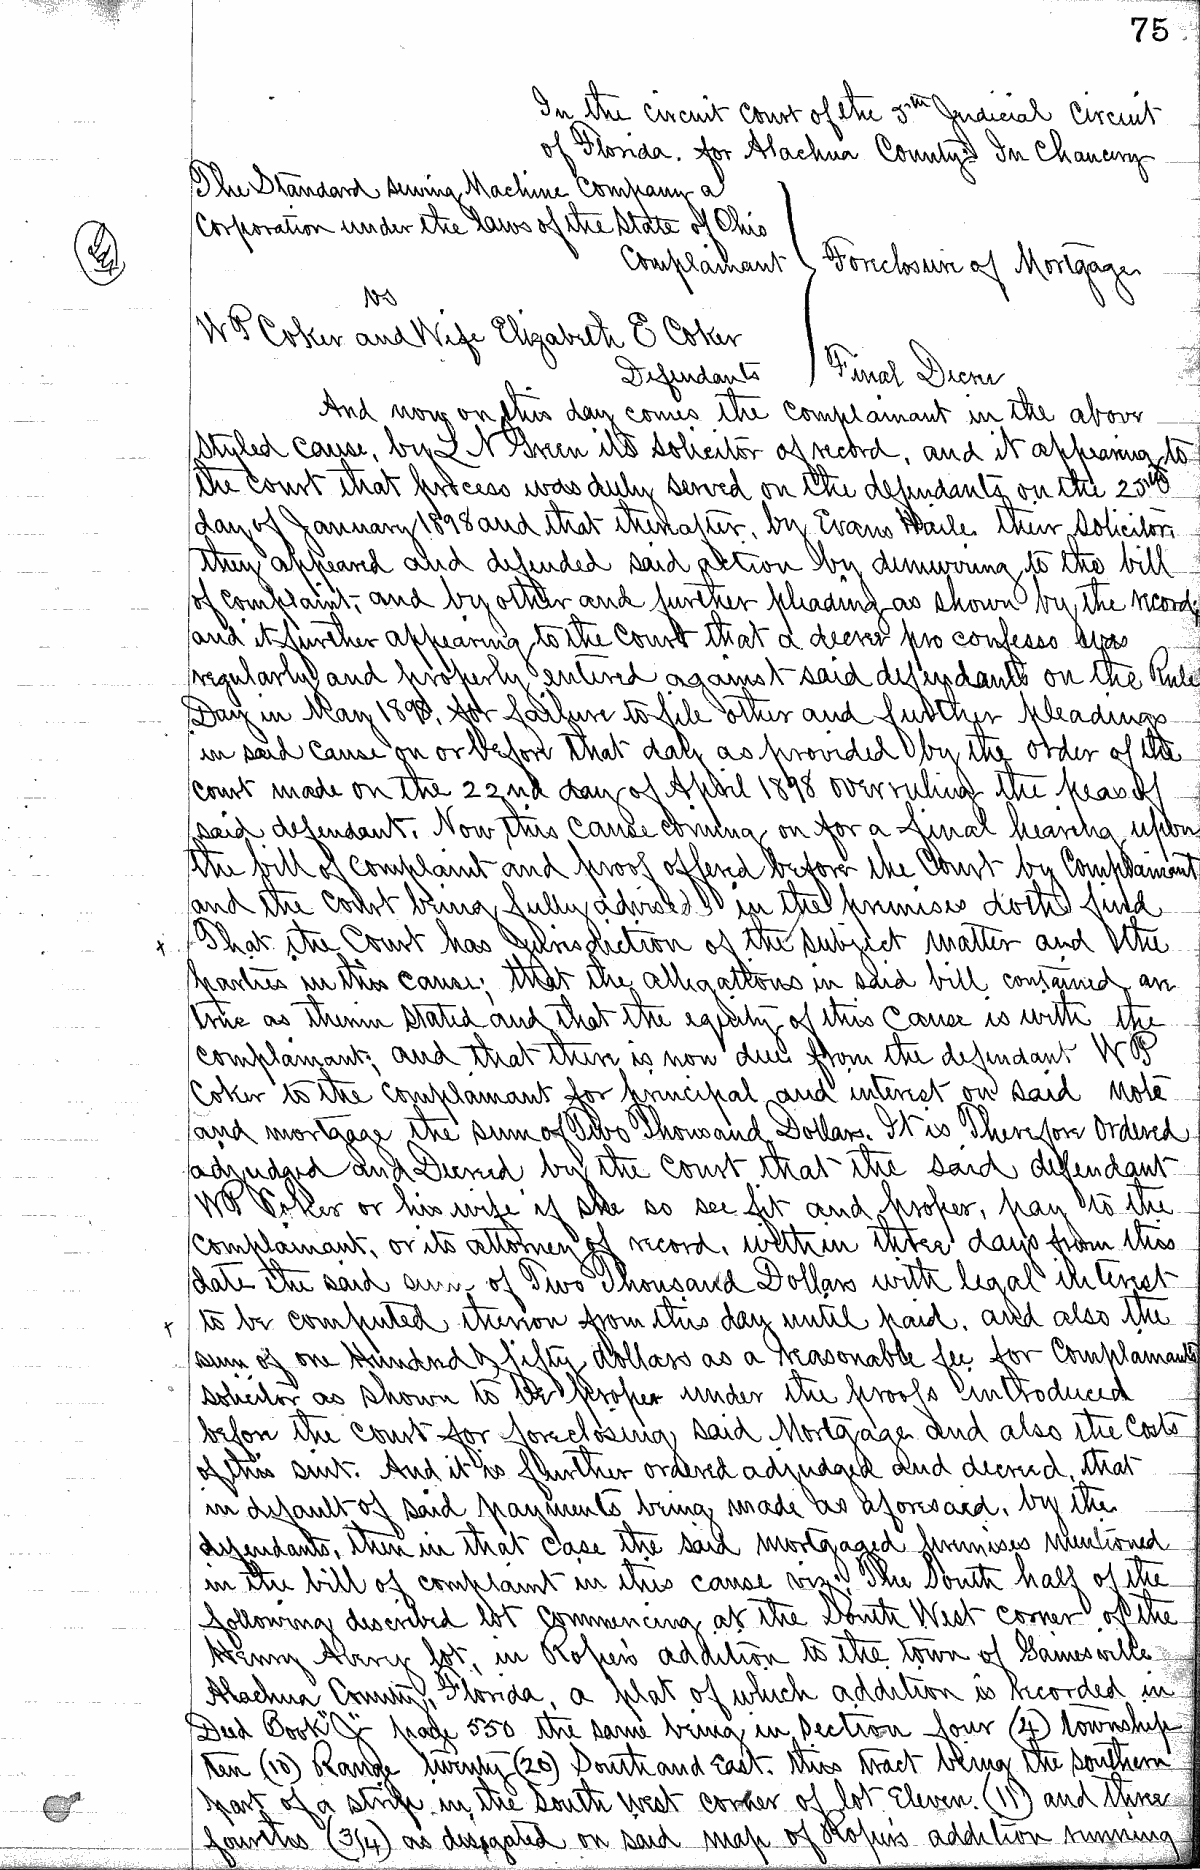 75
In the circuit court of the 5th Judicial Circuit
of Florida. for Alachua County. In Chancery
The Standard sewing Machine Company a
Corporation under the laws of the State of Ohio
Complainant
Foreclosure of Mortgage
vs
W P Coker and Wife Elizabeth E Coker
Defendants
Final Decree
And now on this day comes the complainant in the above
styled cause, by L N Green its solicitor of record, and it appearing to
the court that process was duly served on the defendants on the 25th
day of January 1898 and that thereafter, by Evans Haile their solicitor,
they appeared and defended said action by demurring to the bill
of complaint, and by other and further pleading as shown by the record;
and it further appearing to the Court that a decree pro confesso was
regularly and properly entered against said defendants on the Rule
Day in May 1898, for failure to file other and further pleadings
in said cause on or before that day as provided by the order of the
court made on the 22nd day of April 1898 overruling the pleas of
said defendant. Now this cause coming on for a final hearing upon
the bill of complaint and proof offered before the Court by Complainant
and the court being fully advised in the premises doth find
That the Court has jurisdiction of the subject matter and the
parties in this cause; that the allegations in said bill contained are
true as therein stated and that the equity of this cause is with the
complainant; and that there is now due from the defendant W P
Coker to the complainant for principal and interest on said note
and mortgage the sum of Two Thousand Dollars. It is Therefore Ordered
adjudged and Decreed by the Court that the said defendant
W P Coker or his wife if she so see fit and proper, pay to the
complainant, or its attorney of record, within three days from this
date the said sum of Two Thousand Dollars with legal interest
to be computed thereon from this day until paid, and also the
sum of one Hundred & fifty dollars as a reasonable fee for Complainants
solicitor as shown to be proper under the proofs introduced
before the Court for foreclosing said Mortgage and also the Costs
of this suit. And it is further ordered adjudged and decreed, that
in default of said payments being made as aforesaid, by the
defendants, then in that case the said mortgaged premises mentioned
in the bill of complaint in this cause viz: The South half of the
following described lot commencing at the South West corner of the
Henry Avery lot, in Ropers addition to the town of Gainesville
Alachua County, Florida, a plat of which addition is recorded in
Deed Book "J" page 550 the same being in section four (4) township
ten (10) Range twenty (20) South and East. this tract being the southern
part of a strip in the South West corner of lot Eleven. (11) and three
fourths (3/4) as on said map of Ropers addition running